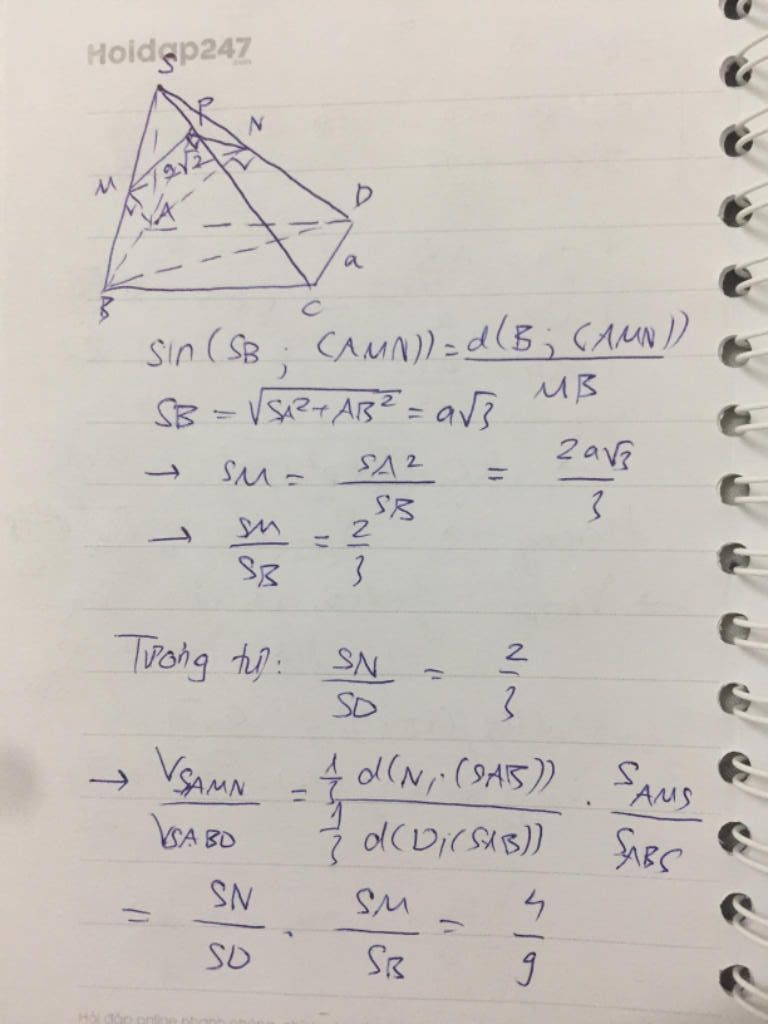 Hoidap247
.com
S
P
N
M
a√2
A
D
a
B
C
sin(SB ; (AMN)) = d(B ; (AMN)) / MB
SB = √(SA² + AB²) = a√3
→ SM = SA² / SB = 2a√3 / 3
→ SM / SB = 2 / 3
Tương tự: SN / SD = 2 / 3
→ V_SAMN / V_SABD = 1/3 d(N; (SAB)) / 1/3 d(D; (SAB)) . S_AMS / S_ABS
= SN / SD . SM / SB = 4 / 9